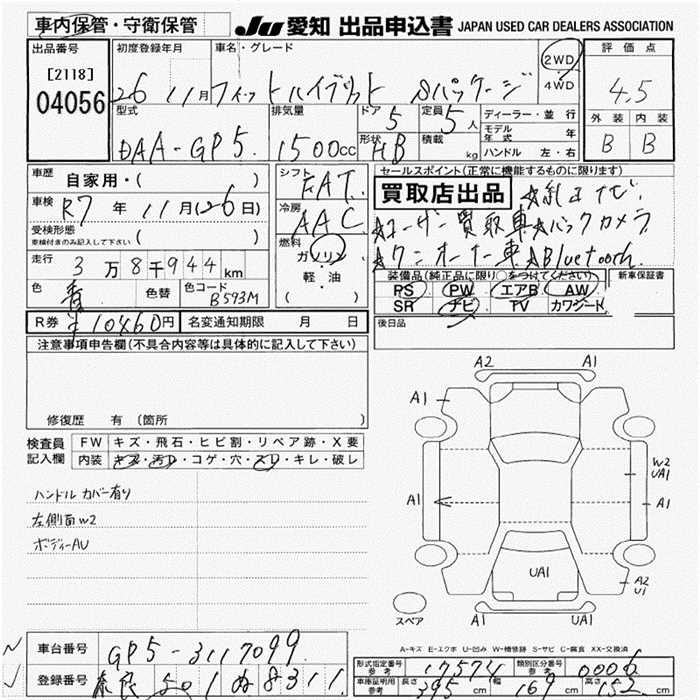 車内保管・守衛保管
JU 愛知 出品申込書 JAPAN USED CAR DEALERS ASSOCIATION
出品番号 初度登録年月 車名・グレード 2WD 評価点
[2118] 26 11月 フィット ハイブリッド Sパッケージ 4WD 4.5
04056 型式 排気量 ドア 5 定員 5人 ディーラー・並行 外装 内装
DAA-GP5. 1500cc 形状 HB 積載 kg モデル年式 年 B B
ハンドル 左・右
車歴 自家用・( ) シフト FAT. セールスポイント(正常に機能するものに限ります)
買取店出品 ☆純正ナビ
車検 R7年 11月(26日) 冷房 AAC ☆ユーザー買取車☆バックカメラ
受検形態 ( ) 燃料 ☆ワンオーナー車☆Bluetooth
車検付きのみ記入して下さい
走行 3万8千944km ガソリン 装備品(純正品に限り○をつけてください) 新車保証書
色 青 色替 色コード B593M 軽・油 PS PW エアB AW
( ) SR ナビ TV カワシート
R券 ¥10460円 名変通知期限 月 日 後日品
注意事項申告欄(不具合内容等は具体的に記入して下さい)
A2 A1
A1
修復歴 有 (箇所 )
検査員 FW キズ・飛石・ヒビ割・リペア跡・X要
記入欄 内装 キズ・汚れ・コゲ・穴・スレ・キレ・破レ
W2
UA1
ハンドル カバー有り A1 A1
左側面W2
ボディーAU
UA1
A2
U1
スペア A1 UA1
A-キズ E-エクボ U-凹み W-補修跡 S-サビ C-腐食 XX-交換済
車台番号 GP5-3117099 形式指定番号 参考 17574 類別区分番号 参考 0006
登録番号 奈良 501 ぬ 8311 車庫証明用 参考 長さ 395cm 幅 169cm 高さ cm